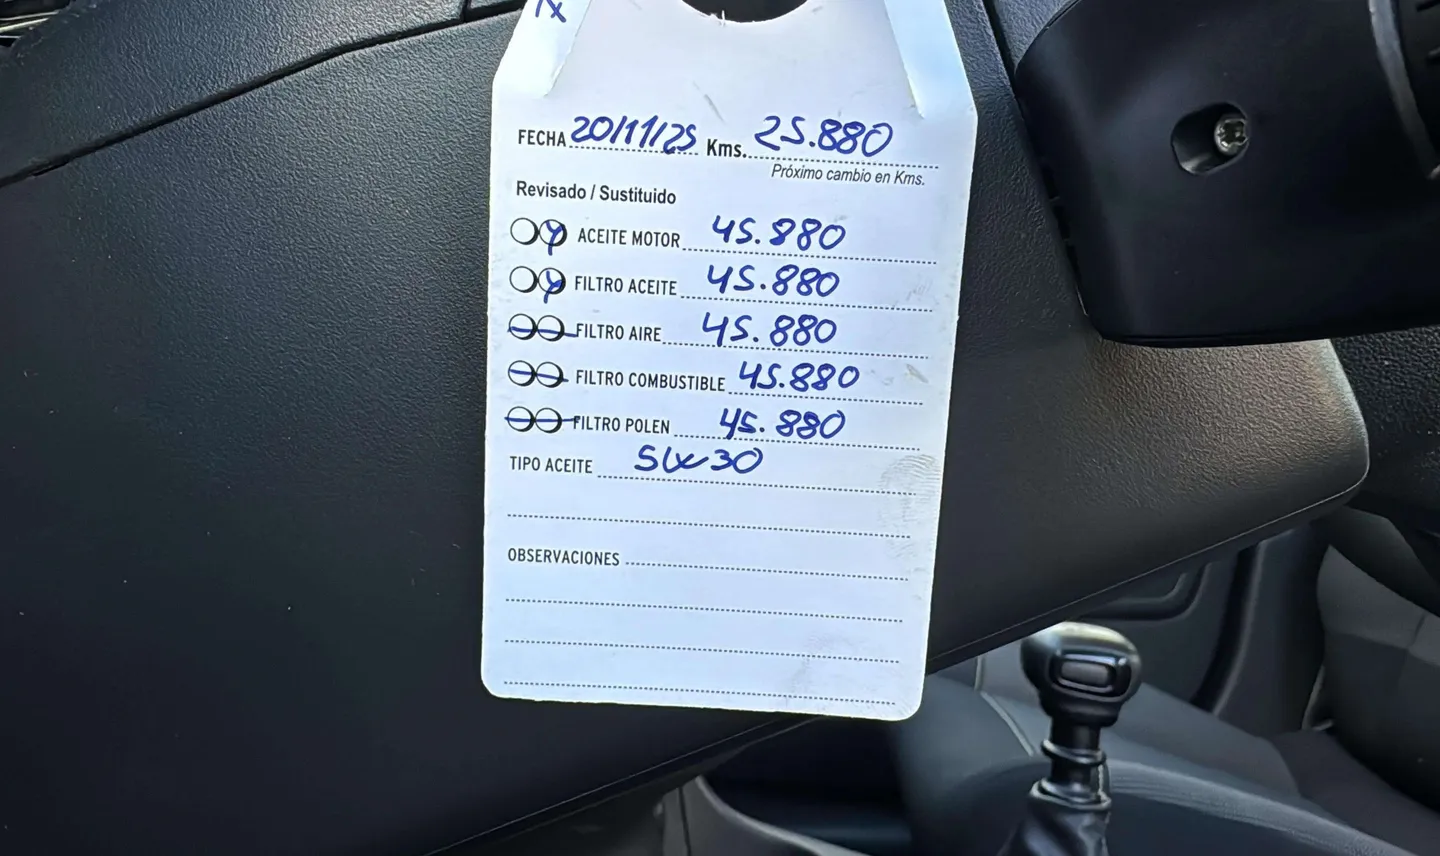 FECHA 20/11/25 Kms. 25.880
Próximo cambio en Kms.
Revisado / Sustituido
ACEITE MOTOR 45.880
FILTRO ACEITE 45.880
FILTRO AIRE 45.880
FILTRO COMBUSTIBLE 45.880
FILTRO POLEN 45.880
TIPO ACEITE 5W30
OBSERVACIONES